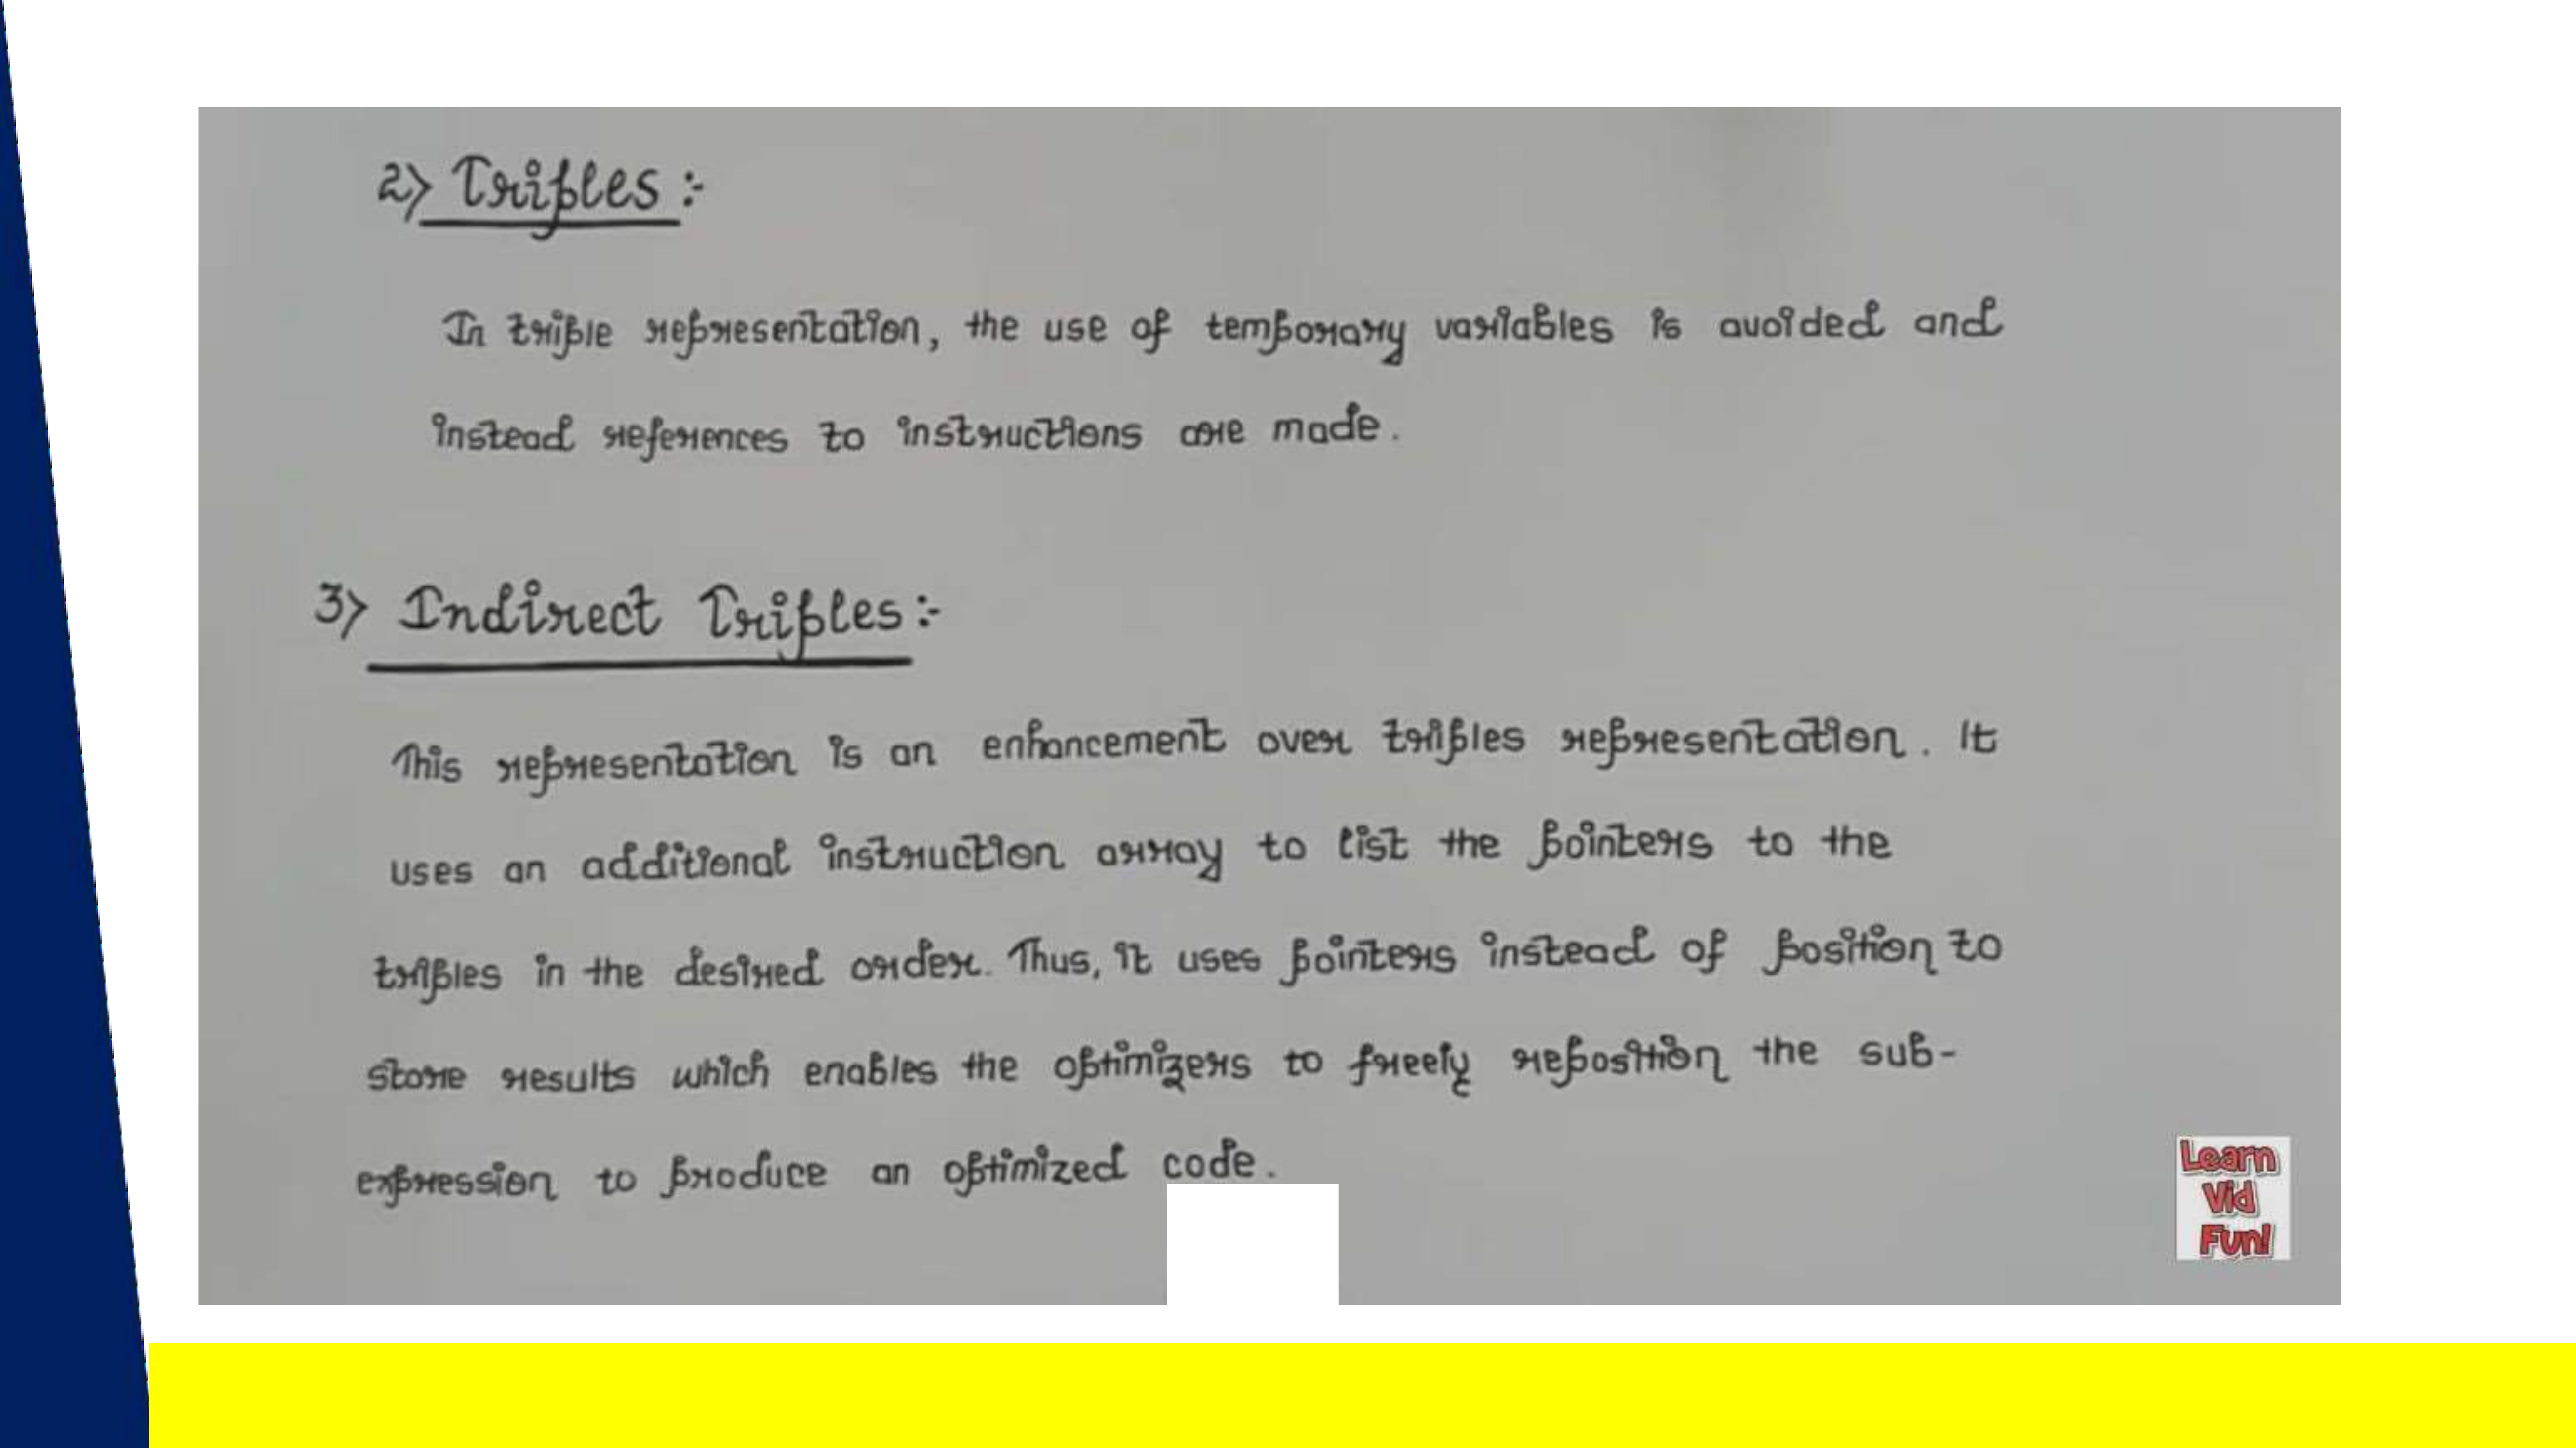 2) Triples :-
In triple representation, the use of temporary variables is avoided and
instead references to instructions are made.
3) Indirect Triples :-
This representation is an enhancement over triples representation. It
uses an additional instruction array to list the pointers to the
triples in the desired order. Thus, it uses pointers instead of position to
store results which enables the optimizers to freely reposition the sub-
expression to produce an optimized code.
Learn
Vid
Fun!